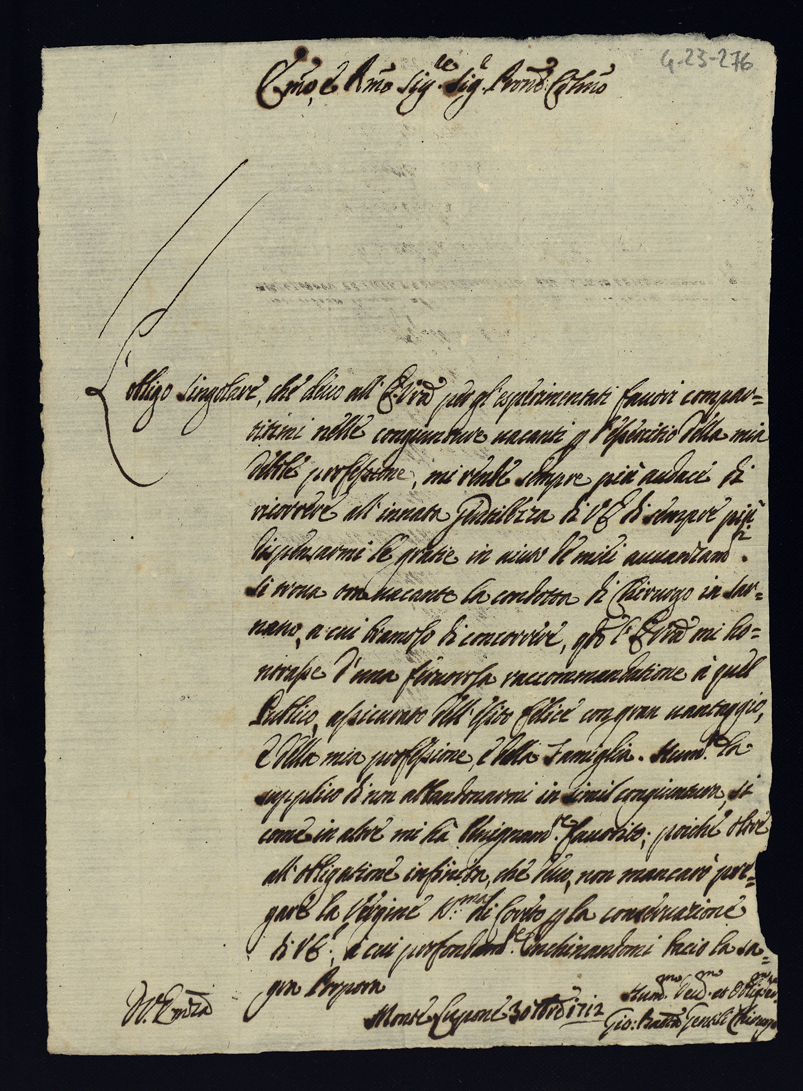 4-23-276
Em̃o, e Rm̃o Sig.re Sig.e Proñe Col̃mo
L'obligo singolare, che devo all'E.Ṽra per gl'esperimentati favori compar=
titimi nelle congiunture vacanti p l'esercitio della mia
debile professione, mi rende sempre più audace di
ricorrere all'innata gentilezza di V.E. di sempre più
dispensarmi le gratie in aiuto de miei avvanzam.ti
Si trova ora vacante la condotta di Chirurgo in Sar=
nano, a cui bramoso di concorrere, q̃do l'E.Ṽra mi ho=
norasse d'una fervorosa raccommandatione à quel
Publico, assicurato dell'esito felice con gran vantaggio,
e della mia professione, e della Famiglia. Hum.te la
supplico di non abbandonarmi in simil congiuntura, si
come in altre mi hà benignam.te favorito; poiche oltre
all'obligatione infinita, che devo, non mancarò pre=
gare la Vergine S.ma di Loreto p la conservatione
di V.E., a cui profondam.te inchinandomi bacio la sa=
gra Porpora
D. V. Em̃za
Monte Lupone 30 1712
Hum.mo Dev.mo et Oblig.mo
Gio: Batt̃a Gentili Chirurgo